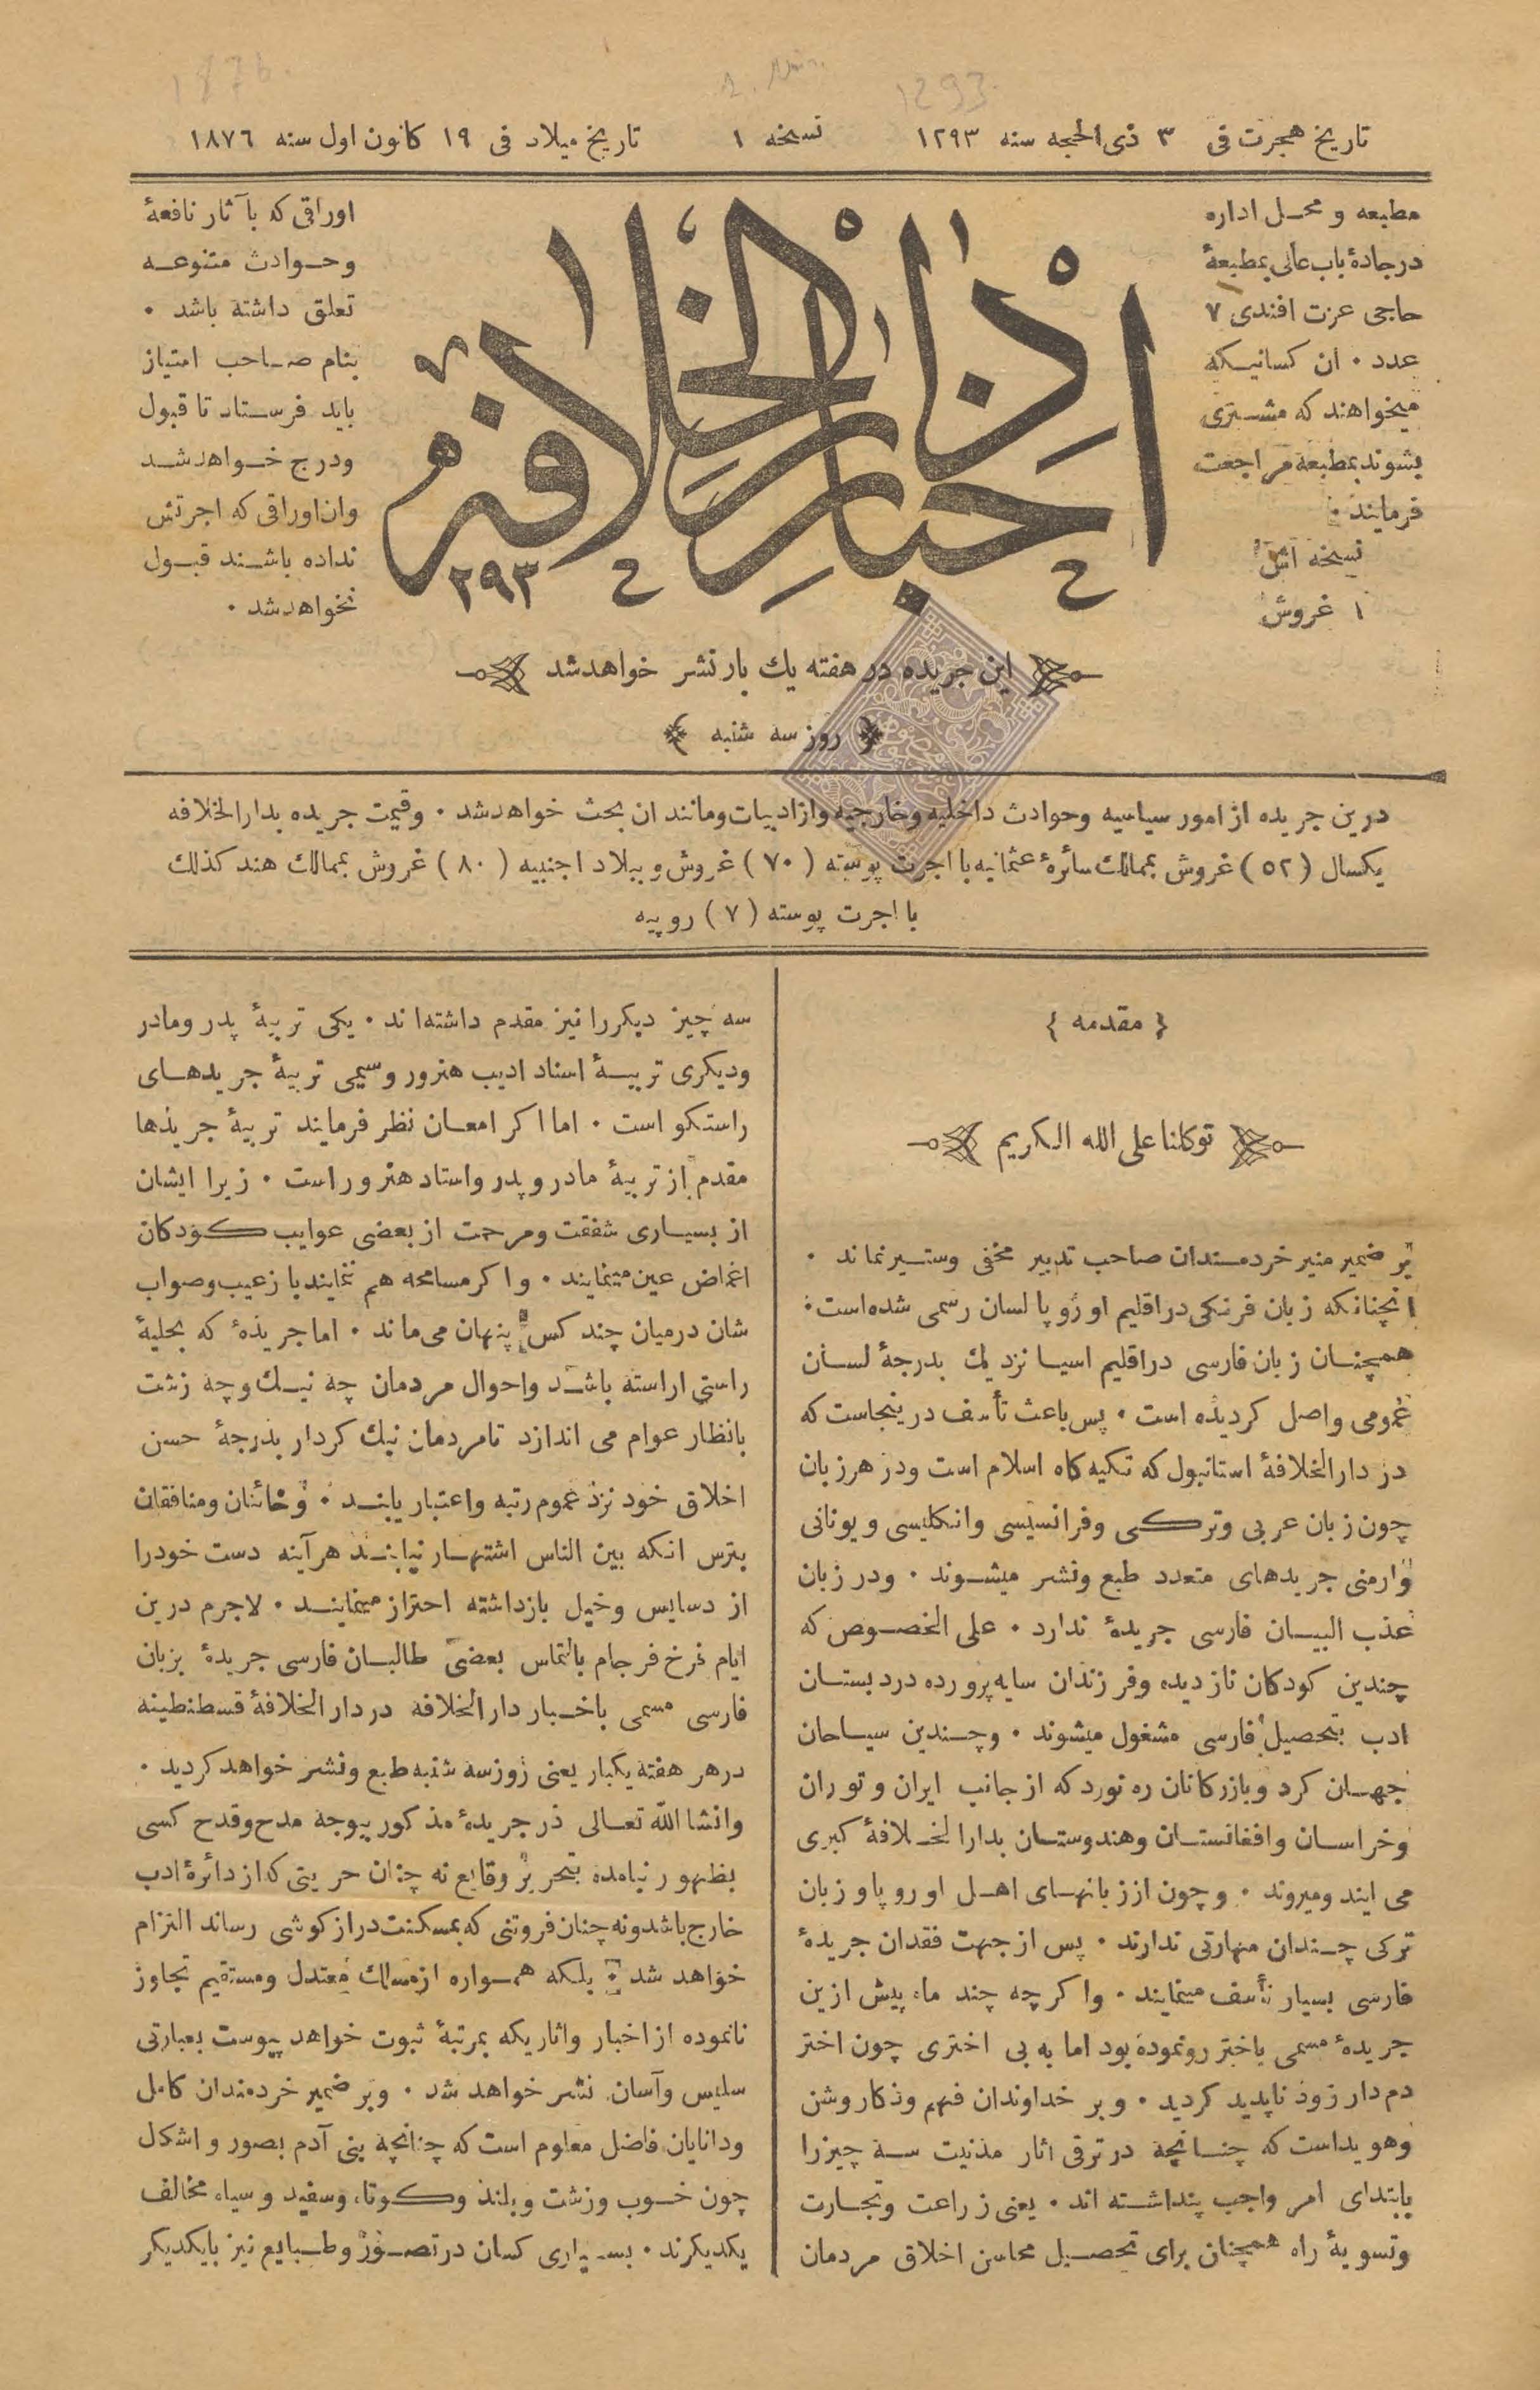 تاریخ هجرت فی ٣ ذی الحجه سنه ١٢٩٣
نسخه ١
تاریخ میلاد فی ١٩ كانون اول سنه ١٨٧٦
مطبعه و محل اداره
درجادهٔ باب عالی بمطبعهٔ
حاجی عزت افندی ٧
عدد ٠ ان كسانیكه
میخواهند كه مشتری
بشوند بمطبعه مراجعت
فرمایند ٠
نسخه اش
١ غروش
اخبار دار الخلافه
٢٩٣
اوراقی كه با آثار نافعهٔ
وحوادث متنوعه
تعلق داشته باشد ٠
بنام صاحب امتیاز
باید فرستاد تا قبول
ودرج خواهد شد
وان اوراقی كه اجرتش
نداده باشند قبول
نخواهد شد ٠
این جریده در هفته یك بار نشر خواهدشد
روز سه شنبه
درین جریده از امور سیاسیه وحوادث داخلیه وخارجیه واز ادبیات ومانند ان بحث خواهدشد ٠ وقیمت جریده بدار الخلافه
یكسال (٥٢) غروش بممالك سائرهٔ عثمانیه با اجرت پوسته (٧٠) غروش و ببلاد اجنبیه (٨٠) غروش بممالك هند كذلك
با اجرت پوسته (٧) روپیه
{ مقدمه }
توكلنا علی الله الكریم
بر ضمیر منیر خردمندان صاحب تدبیر مخفی وستیر نماند ٠
انچنانكه زبان فرنكی در اقلیم اوروپا لسان رسمی شده است ٠
همچنان زبان فارسی در اقلیم اسیا نزدیك بدرجهٔ لسان
عمومی واصل كردیده است ٠ پس باعث تأسف درینجاست كه
در دار الخلافهٔ استانبول كه تكیه كاه اسلام است ودر هر زبان
چون زبان عربی وتركی وفرانسیسی وانكلیسی و یونانی
وارمنی جریدهای متعدد طبع ونشر میشوند ٠ ودر زبان
عذب البیان فارسی جریدهٔ ندارد ٠ علی الخصوص كه
چندین كودكان نازدیده وفرزندان سایه پرورده در دبستان
ادب بتحصیل فارسی مشغول میشوند ٠ وچندین سیاحان
جهان كرد وبازركانان ره نورد كه از جانب ایران و توران
وخراسان وافغانستان وهندوستان بدار الخلافهٔ كبری
می ایند ومیروند ٠ و چون از زبانهای اهل اوروپا و زبان
تركی چندان مهارتی ندارند ٠ پس از جهت فقدان جریدهٔ
فارسی بسیار تأسف مینمایند ٠ واكرچه چند ماه پیش ازین
جریدهٔ مسمی باختر رونموده بود اما به بی اختری چون اختر
دم دار زود ناپدید كردید ٠ و بر خداوندان فهم وذكا روشن
وهویداست كه چنانچه در ترقی اثار مدنیت سه چیز را
بابتدای امر واجب پنداشته اند ٠ یعنی زراعت وتجارت
وتسویهٔ راه همچنان برای تحصیل محاسن اخلاق مردمان
سه چیز دیكر را نیز مقدم داشته اند ٠ یكی تربیهٔ پدر ومادر
ودیكری تربیهٔ استاد ادیب هنرور وسیمی تربیهٔ جریدهای
راستكو است ٠ اما اكر امعان نظر فرمایند تربیهٔ جریدها
مقدم از تربیهٔ مادر و پدر واستاد هنرور است ٠ زیرا ایشان
از بسیاری شفقت ومرحمت از بعضی عوایب كودكان
اغماض عین مینمایند ٠ واكر مسامحه هم ننمایند باز عیب وصواب
شان درمیان چند كس پنهان می ماند ٠ اما جریدهٔ كه بحلیهٔ
راستی اراسته باشد واحوال مردمان چه نیك وچه زشت
بانظار عوام می اندازد تا مردمان نیك كردار بدرجهٔ حسن
اخلاق خود نزد عموم رتبه واعتبار یابند ٠ وخائنان ومنافقان
بترس انكه بین الناس اشتهار نیابند هرآینه دست خودرا
از دسایس وحیل بازداشته احتراز مینمایند ٠ لاجرم درین
ایام فرخ فرجام بالتماس بعضی طالبان فارسی جریدهٔ بزبان
فارسی مسمی باخبار دار الخلافه در دار الخلافهٔ قسطنطینه
در هر هفته یكبار یعنی روز سه شنبه طبع ونشر خواهد كردید ٠
وانشا الله تعالی در جریدهٔ مذكور بیوجه مدح وقدح كسی
بظهور نیامده بتحریر وقایع نه چنان حریتی كه از دائرهٔ ادب
خارج باشد ونه چنان فروتنی كه بمسكنت دراز كوشی رساند التزام
خواهد شد ٠ بلكه همواره از مسلك معتدل ومستقیم تجاوز
نانموده از اخبار واثاریكه بمرتبهٔ ثبوت خواهد پیوست بعبارتی
سلیس وآسان نشر خواهد شد ٠ وبر ضمیر خردمندان كامل
ودانایان فاضل معلوم است كه چنانچه بنی آدم بصور و اشكال
چون خوب وزشت و بلند وكوتاه وسفید و سیاه مخالف
یكدیكرند ٠ بسیاری كسان در تصور وطبایع نیز بایكدیكر